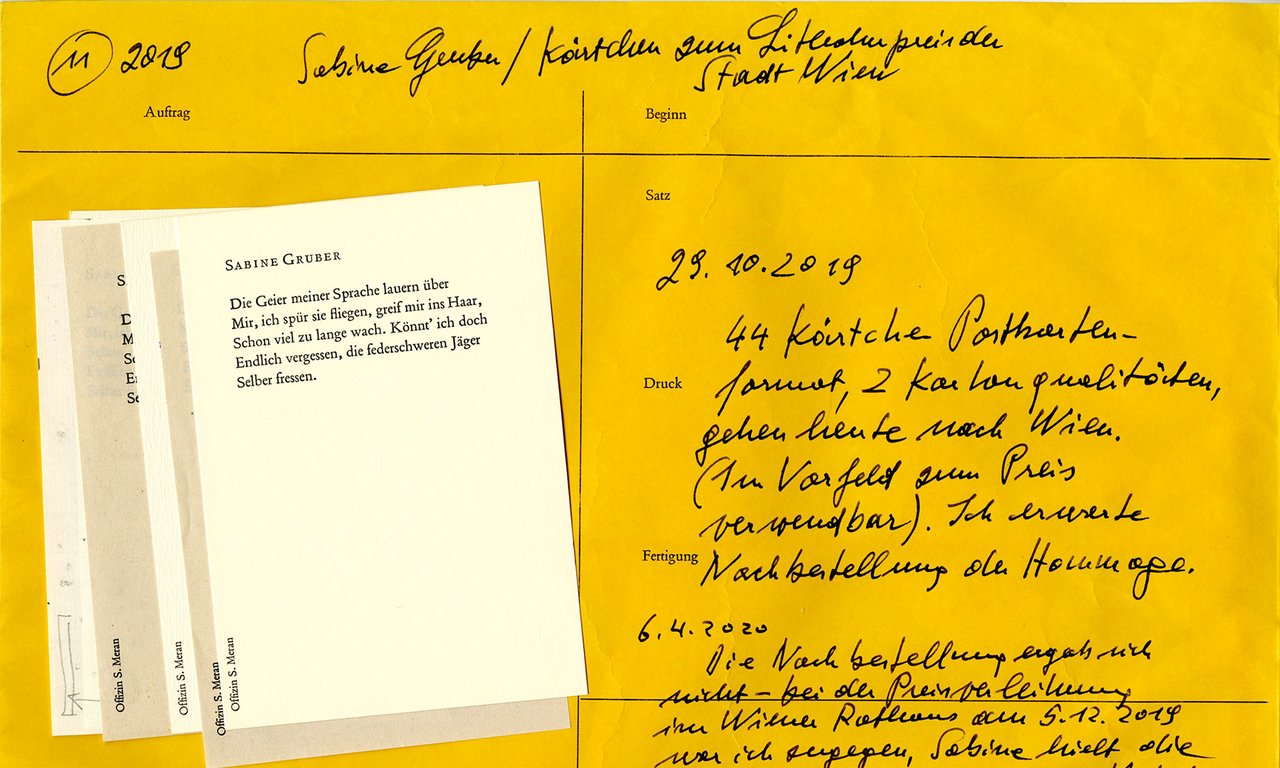 11 2019 Sabine Gruber / Kärtchen zum Literaturpreis der
Stadt Wien
Auftrag
Beginn
Satz
SABINE GRUBER
Die Geier meiner Sprache lauern über
Mir, ich spür sie fliegen, greif mir ins Haar,
Schon viel zu lange wach. Könnt’ ich doch
Endlich vergessen, die federschweren Jäger
Selber fressen.
S
D
M
Sc
En
Se
Offizin S. Meran
Offizin S. Meran
Offizin S. Meran
Offizin S. Meran
29.10.2019
44 Kärtchen Postkarten-
Druck
format, 2 Kartonqualitäten,
gehen heute nach Wien.
(Im Vorfeld zum Preis
verwendbar). Ich erwarte
Fertigung
Nachbestellung der Hommage.
6.4.2020
Die Nachbestellung ergab sich
nicht – bei der Preisverleihung
im Wiener Rathaus am 5.12.2019
war ich zugegen, Sabine hielt die